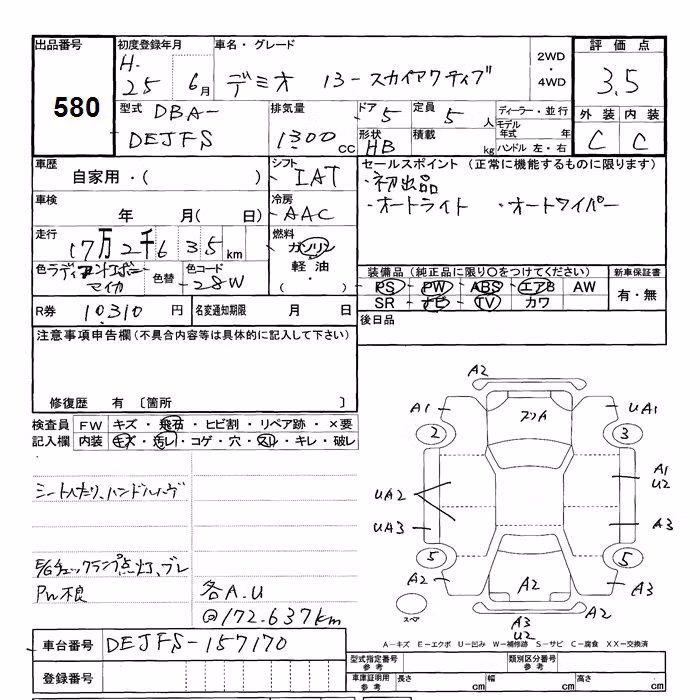 出品番号 初度登録年月 車名・グレード 2WD 評価点
580 H-25 6月 デミオ 13-スカイアクティブ ・4WD 3.5
型式 DBA-DEJFS 排気量 1300 CC ドア 5 定員 5 人 ディーラー・並行 外装 内装
形状 HB 積載 kg モデル年式 年 ハンドル 左・右 C C
車歴 自家用・( ) シフト IAT セールスポイント (正常に機能するものに限ります)
・初出品
車検 年 月( 日) 冷房 AAC ・オートライト ・オートワイパー
走行 17万2千635km 燃料 ガソリン
軽油
・
色 ラディアントエボニーマイカ 色替 色コード 28W 装備品 (純正品に限り○をつけてください) 新車保証書
PS・PW・ABS・エアB AW 有・無
R券 10,310 円 名変通知期限 月 日 SR・ナビ・TV・カワ
注意事項申告欄(不具合内容等は具体的に記入して下さい) 後日品
修復歴 有 〔箇所 〕
検査員記入欄 FW キズ・飛石・ヒビ割・リペア跡・×要
内装 キズ・汚レ・コゲ・穴・スレ・キレ・破レ
シートへたり、ハンドルハゲ
E/Gチェックランプ点灯、ブレ
PW不良 各A.U
@172.637km
A2
A1 フリA UA1
2 3
A1
U2
UA2
UA3 A3
5 5
A2 A2 A3
スペア A3
U2
A-キズ E-エクボ U-凹み W-補修跡 S-サビ C-腐食 XX-交換済
車台番号 DEJFS-157170
登録番号
型式指定番号 参考 類別区分番号 参考
車庫証明用 参考 長さ cm 幅 cm 高さ cm